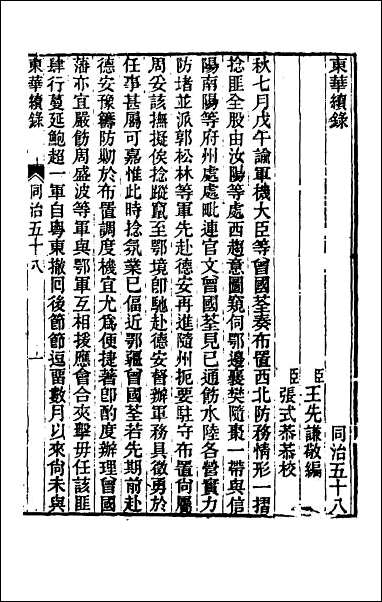 東華續錄
同治五十八
臣王先謙敬編
臣張式恭恭校
秋七月戊午諭軍機大臣等曾國荃奏布置西北防務情形一摺
捻匪全股由汝陽等處西趨意圖窺伺鄂邊襄樊隨棗一帶與信
陽南陽等府州處處毗連官文曾國荃見已通飭水陸各營實力
防堵並派郭松林等軍先赴德安再進隨州扼要駐守布置尙屬
周妥該撫擬俟捻蹤竄至鄂境卽馳赴德安督辦軍務具徵勇於
任事甚屬可嘉惟此時捻氛業已偪近鄂疆曾國荃若先期前赴
德安豫籌防勦於布置調度機宜尤爲便捷著卽酌度辦理曾國
藩亦宜嚴飭周盛波等軍與鄂軍互相援應會合夾擊毋任該匪
肆行蔓延鮑超一軍自粤東撤回後節節逗留數月以來尙未與
東華續錄
同治五十八
一